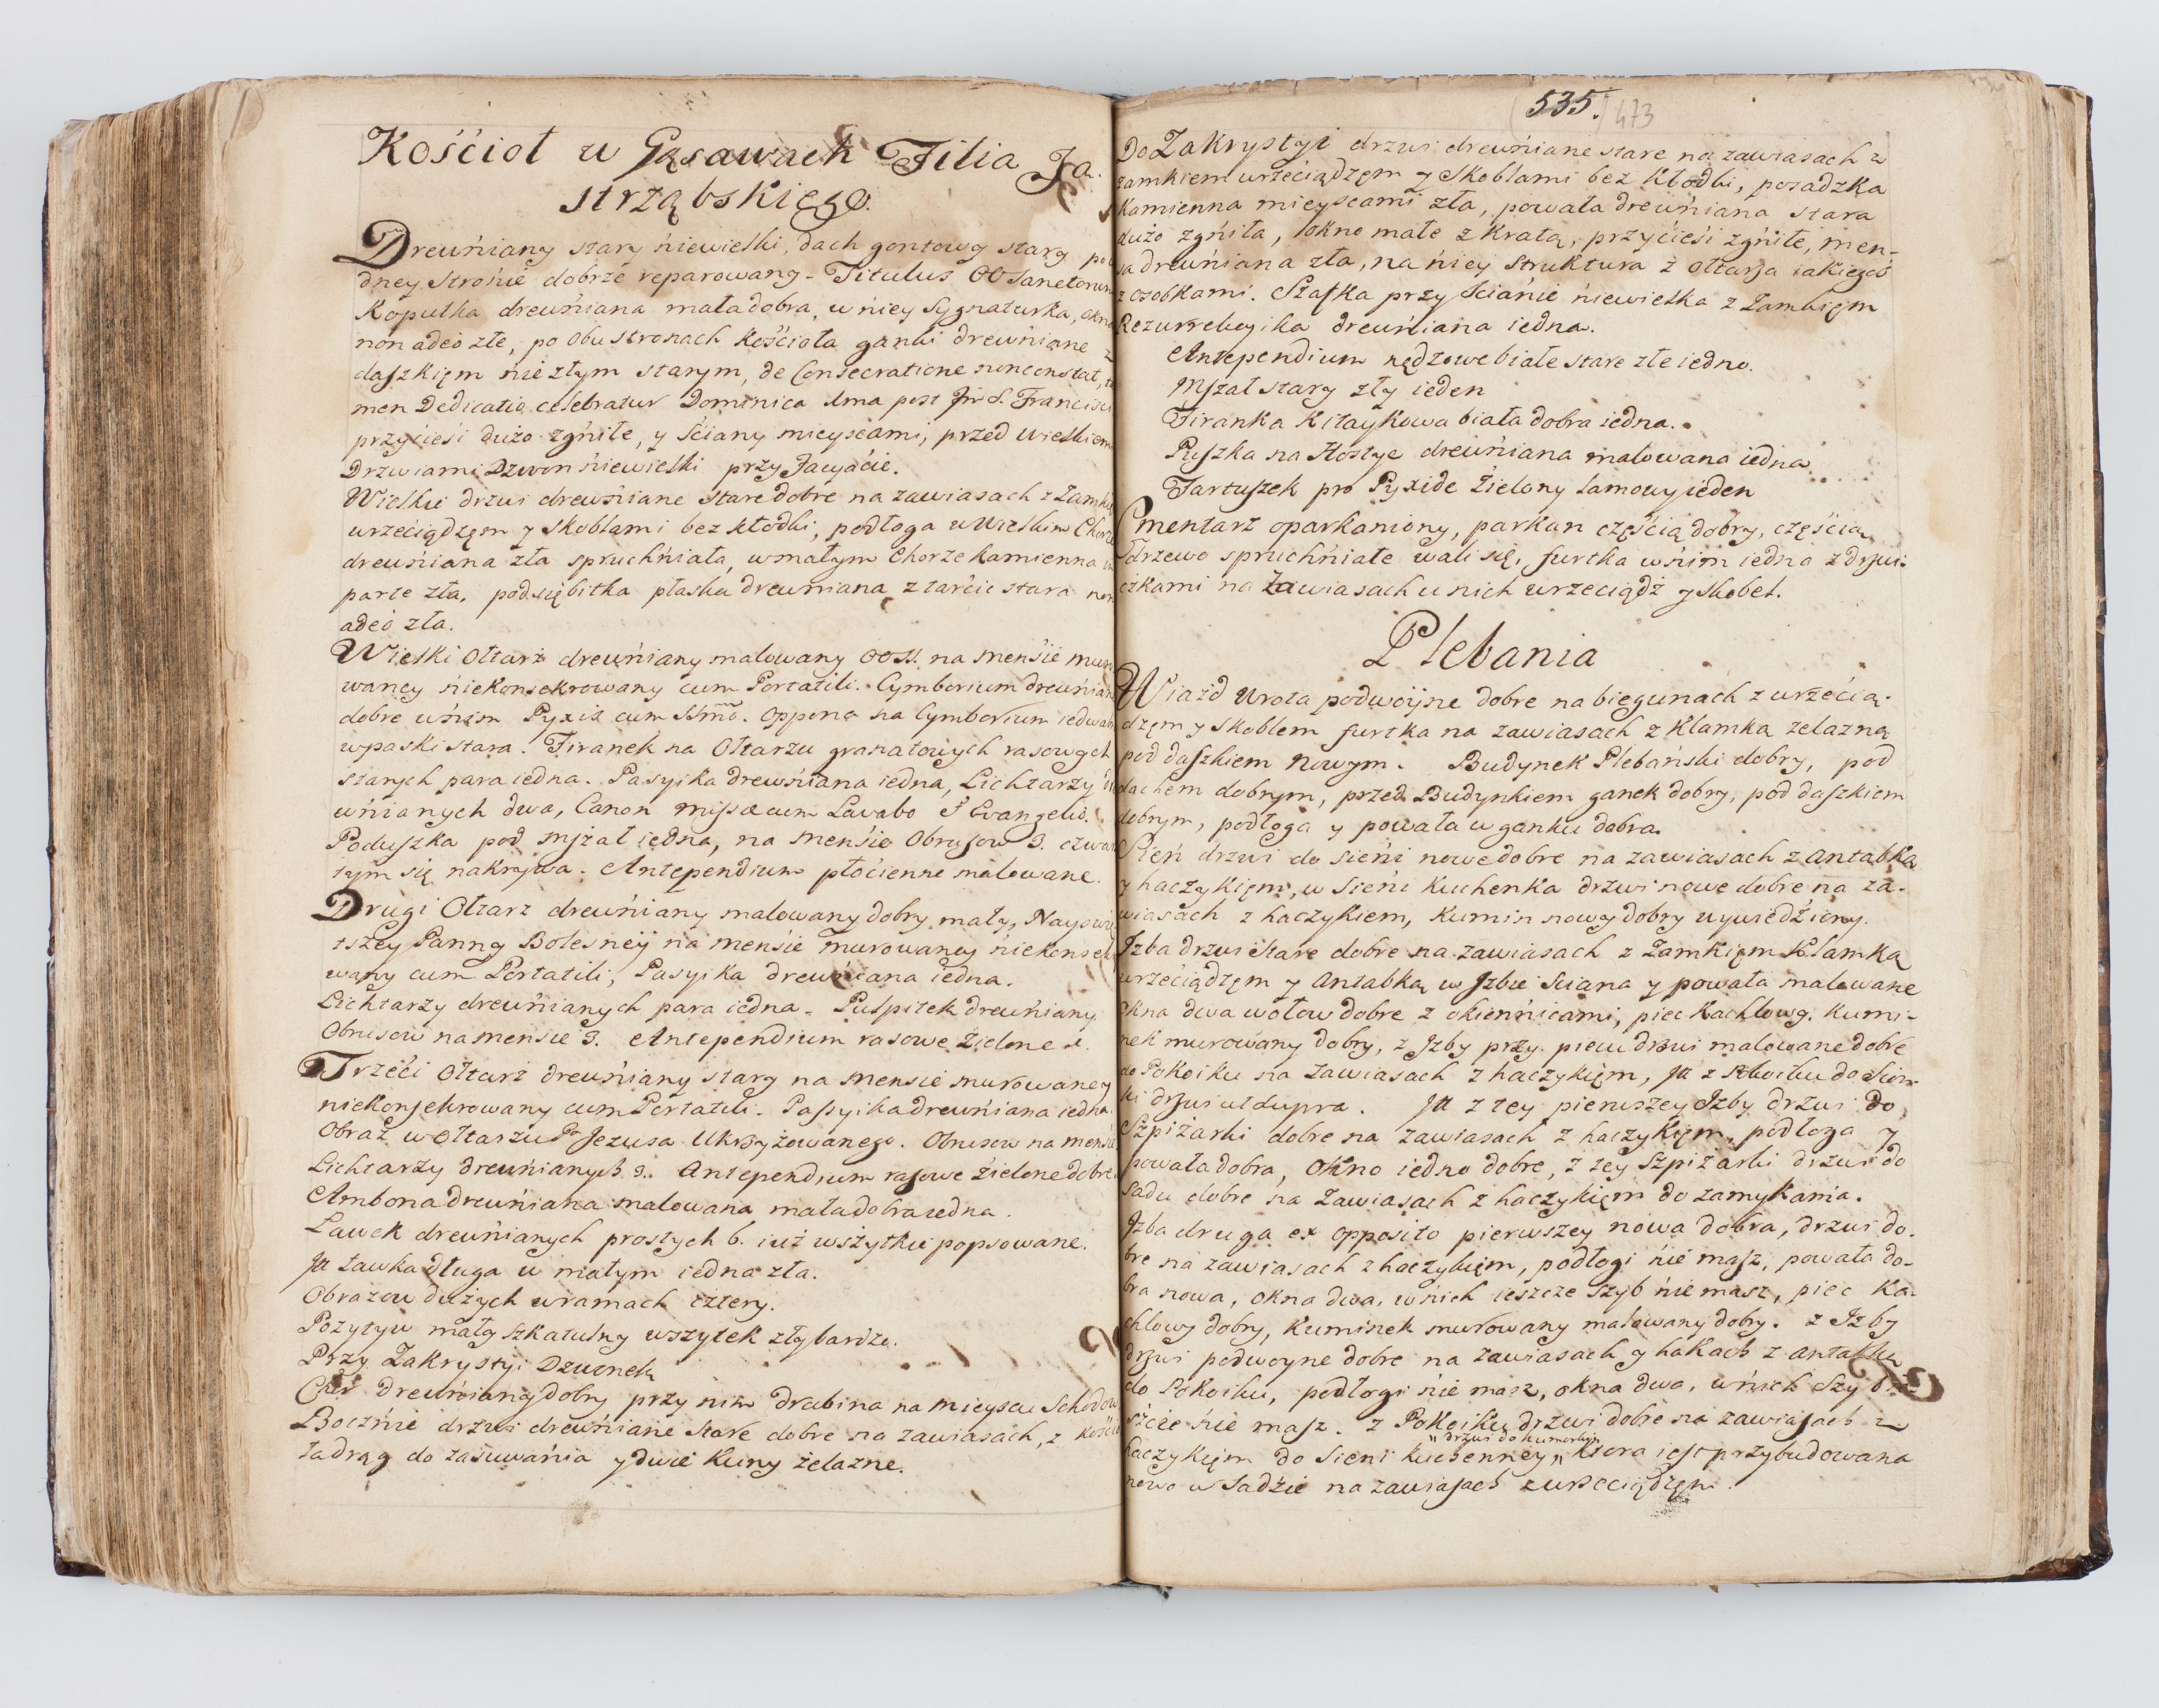 Kościoł w Gąsawach Filia Ja-
strząbskiego.
Drewniany stary niewielki, dach gontowy stary po
dney stronie dobrze reparowany - Titulus OO Sanctorum
Kopułka drewniana mała dobra, w niey Sygnaturka, okna
non adeo złe, po obu stronach Kościoła ganki drewniane z
daszkiem nie złym starym, de Consecratione non constat, ta
men Dedicatio celebratur Dominica 1ma post S. Francisci
przycieśi dużo zgniłe, y ściany mieyscami, przed Wielkiemi
Drzwiami Dzwon niewielki przy Facyacie.
Wielkie drzwi drewniane stare dobre na zawiasach z Zamkie
wrzeciądzem y skoblami bez kłodki, podłoga w Wielkim Chorze
drewniana zła spruchniała, w małym Chorze kamienna in
parte zła, podsiębitka płaska drewniana z tarcic stara non
adeo zła.
Wielki Ołtarz drewniany malowany OO SS. na mensie muro
waney niekonsekrowany cum Portatili. Cymborium drewniane
dobre w nim Pyxis cum SSmo. Oppona na Cymborium iedwab
w paski stara. Firanek na Ołtarzu granatowych rasowych
starych para iedna. Pasyika drewniana iedna, Lichtarzy dre
wnianych dwa, Canon missæ cum Lavabo & Evangelio.
Poduszka pod mszał iedna, na mensie Obrusow 3. czwar
tym się nakrywa. Antependium płocienne malowane.
Drugi Ołtarz drewniany malowany dobry, mały, Nayświę
tszey Panny Bolesney na mensie murowaney niekonsekro
wany cum Portatili, Pasyika drewniana iedna.
Lichtarzy drewnianych para iedna. Pulpitek drewniany
Obrusow na mensie 3. Antependium rasowe Zielone 1.
Trzeci Ołtarz drewniany stary na mensie murowaney
niekonsekrowany cum Portatili. Passyika drewniana iedna
Obraz w Ołtarzu Pa Jezusa Ukrzyżowanego. Obrusow na mensie
Lichtarzy drewnianych 3. Antependium rasowe zielone dobre
Ambona drewniana malowana mała dobra iedna.
Lawek drewnianych prostych 6. iuż wszytkie popsowane.
It ławka długa w małym iedna zła.
Obrazow dużych w ramach cztery.
Pozytyw mały szkatulny wszytek zły bardzo.
Przy Zakrystyi Dzwonek
Chor drewniany dobry przy nim drabina na mieyscu Schodow
Bocznie drzwi drewniane stare dobre na zawiasach, z kościo
ła drąg do zasuwania y dwie kuny żelazne.
535. 473
Do Zakrystyi drzwi drewniane stare na zawiasach z
zamkiem wrzeciądzem y skoblami bez kłodki, posadzka
Kamienna mieyscami zła, powała drewniana stara
dużo zgniła, okno małe z kratą, przycieśi zgniłe, men-
sa drewniana zła, na niey struktura z ołtarza iakiegoś
z osobkami. Szafka przy ścianie niewielka z Zamkiem
Rezurrekcyika drewniana iedna.
Antependium nędzowe białe stare złe iedno.
Mszał stary zły ieden
Firanka kitaykowa biała dobra iedna.
Puszka na Hostye drewniana malowana iedna
Fartuszek pro Pyxide Zielony lamowy ieden
Cmentarz oparkaniony, parkan częścią dobry, częścią
drzewo spruchniałe wali się, furtka w nim iedna z drzwi-
czkami na Zawiasach u nich wrzeciądz y skobel.
Plebania
Wiazd Wrota podwoyne dobre na biegunach z wrzecią-
dzem y skoblem furtka na zawiasach z Klamką żelazną
pod daszkiem nowym. Budynek Plebański dobry, pod
dachem dobrym, przed Budynkiem ganek dobry, pod daszkiem
dobrym, podłoga y powała w ganku dobra.
Sień drzwi do sieni nowe dobre na zawiasach z antabką
y haczykiem, w Sieni kuchenka drzwi nowe dobre na za-
wiasach z haczykiem, kumin nowy dobry wywiedziony.
Izba drzwi stare dobre na zawiasach z Zamkiem Klamką
wrzeciądzem y antabką w Izbie Sciana y powała malowane
okna dwa w ołow dobre z okiennicami, piec kachlowy. Kumi-
nek murowany dobry, z Izby przy piecu drzwi malowane dobre
do Pokoiku na Zawiasach z haczykiem, It z Pokoiku do Sion-
ki drzwi ut supra. It z tey pierwszey Izby drzwi do
Szpiżarki dobre na zawiasach z haczykiem, podłoga y
powała dobra, okno iedno dobre, z tey Szpiżarki drzwi do
sadu dobre na Zawiasach z haczykiem do zamykania.
Izba druga ex opposito pierwszey nowa dobra, drzwi do-
bre na zawiasach z haczykiem, podłogi nie masz, powała do-
bra nowa, okna dwa, w nich ieszcze szyb nie masz, piec ka-
chlowy dobry, kuminek murowany malowany dobry. z Izby
drzwi podwoyne dobre na zawiasach y hakach z antabką
do Pokoiku, podłogi nie masz, okna dwa, w nich szyb ie-
szcze nie masz. z Pokoiku drzwi dobre na zawiasach z
" drzwi do kumorkiy
haczykiem do Sieni kuchenney " ktora iest przybudowana
nowo w Sadzie na zawiasach z wrzeciądzem.